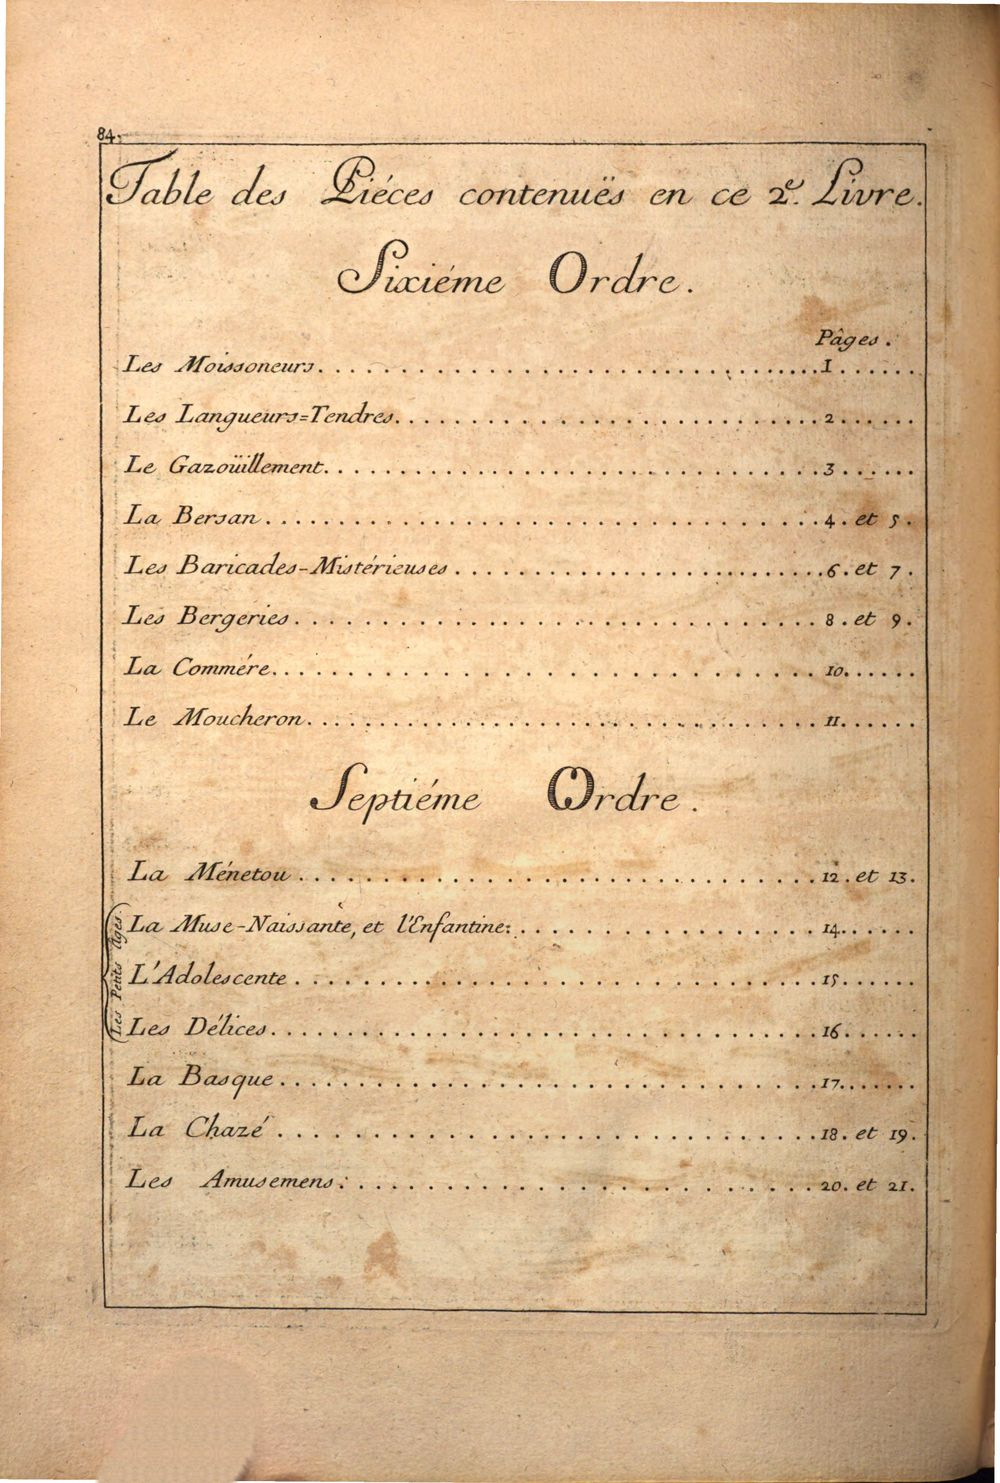 84.
Table des Piéces contenuës en ce 2.e Livre.
Sixiéme Ordre.
Pâges.
Les Moissoneurs. . . . . . . . . . 1 . . . . . .
Les Langueurs=Tendres. . . . . . . . . . 2 . . . . . .
Le Gazoüillement. . . . . . . . . . 3 . . . . . .
La Bersan . . . . . . . . . . 4. et 5.
Les Baricades-Mistérieuses . . . . . . . . . . 6. et 7.
Les Bergeries . . . . . . . . . . 8. et 9.
La Commére. . . . . . . . . . 10. . . . . .
Le Moucheron. . . . . . . . . . 11. . . . . .
Septiéme Ordre.
La Ménetou . . . . . . . . . . 12. et 13.
Les Petits Ages
La Muse-Naissante, et l'Enfantine: . . . . . . . . . . 14. . . . . .
L'Adolescente . . . . . . . . . . 15. . . . . .
Les Délices. . . . . . . . . . 16. . . . . .
La Basque . . . . . . . . . . 17. . . . . .
La Chazé . . . . . . . . . . 18. et 19.
Les Amusemens: . . . . . . . . . . 20. et 21.